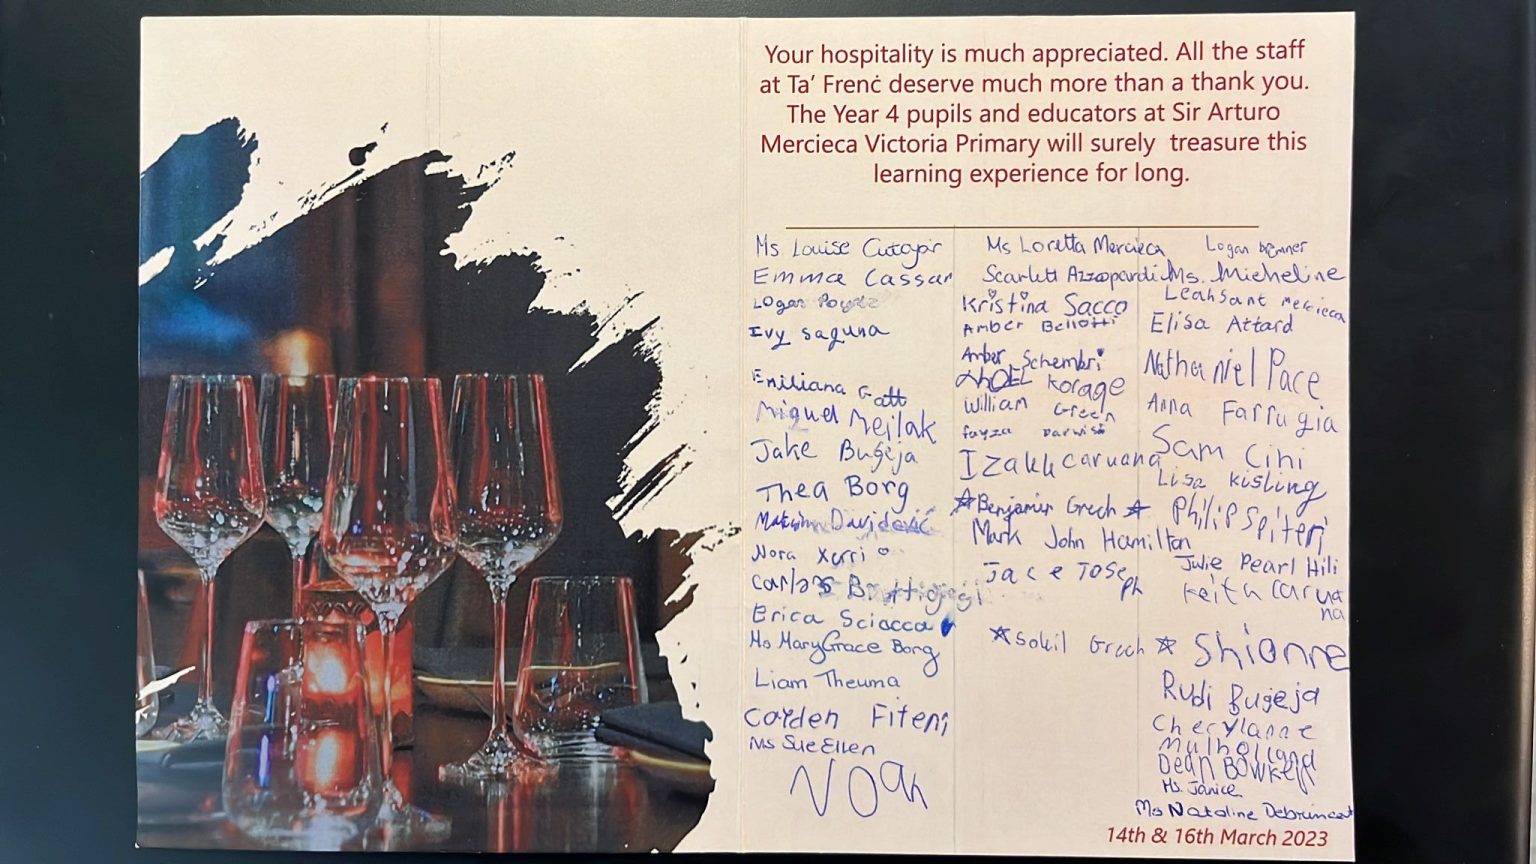 Your hospitality is much appreciated. All the staff
at Ta’ Frenċ deserve much more than a thank you.
The Year 4 pupils and educators at Sir Arturo
Mercieca Victoria Primary will surely treasure this
learning experience for long.
Ms Louise Cutajar
Emma Cassar
Logan
Ivy saguna
Emiliana Gatt
Miguel Mejlak
Jake Buġeja
Thea Borg
Davidović
Nora Xerri
Carlos Buttigieg
Erica Sciacca
Ms MaryGrace Borg
Liam Theuma
Cayden Fiteni
Ms SueEllen
Noah
Ms Loretta Mercieca
Scarlett Azzopardi
Kristina Sacco
Amber Bellotti
Amber Schembri
Korage
William Green
fayza Darwish
Izakk caruana
Benjamin Grech
Mark John Hamilton
Jace Joseph
Grech
Logan bremner
Ms. Micheline
Leahsant mercieca
Elisa Attard
Nathaniel Pace
Anna Farrugia
Sam Cini
Lisa Kisling
Philip Spiteri
Julie Pearl Hili
Keith Carua
na
Shionne
Rudi Bugeja
Cherylanne
Mulholland
Dean Bowker
Ms. Janice
Ms Nataline
14th & 16th March 2023